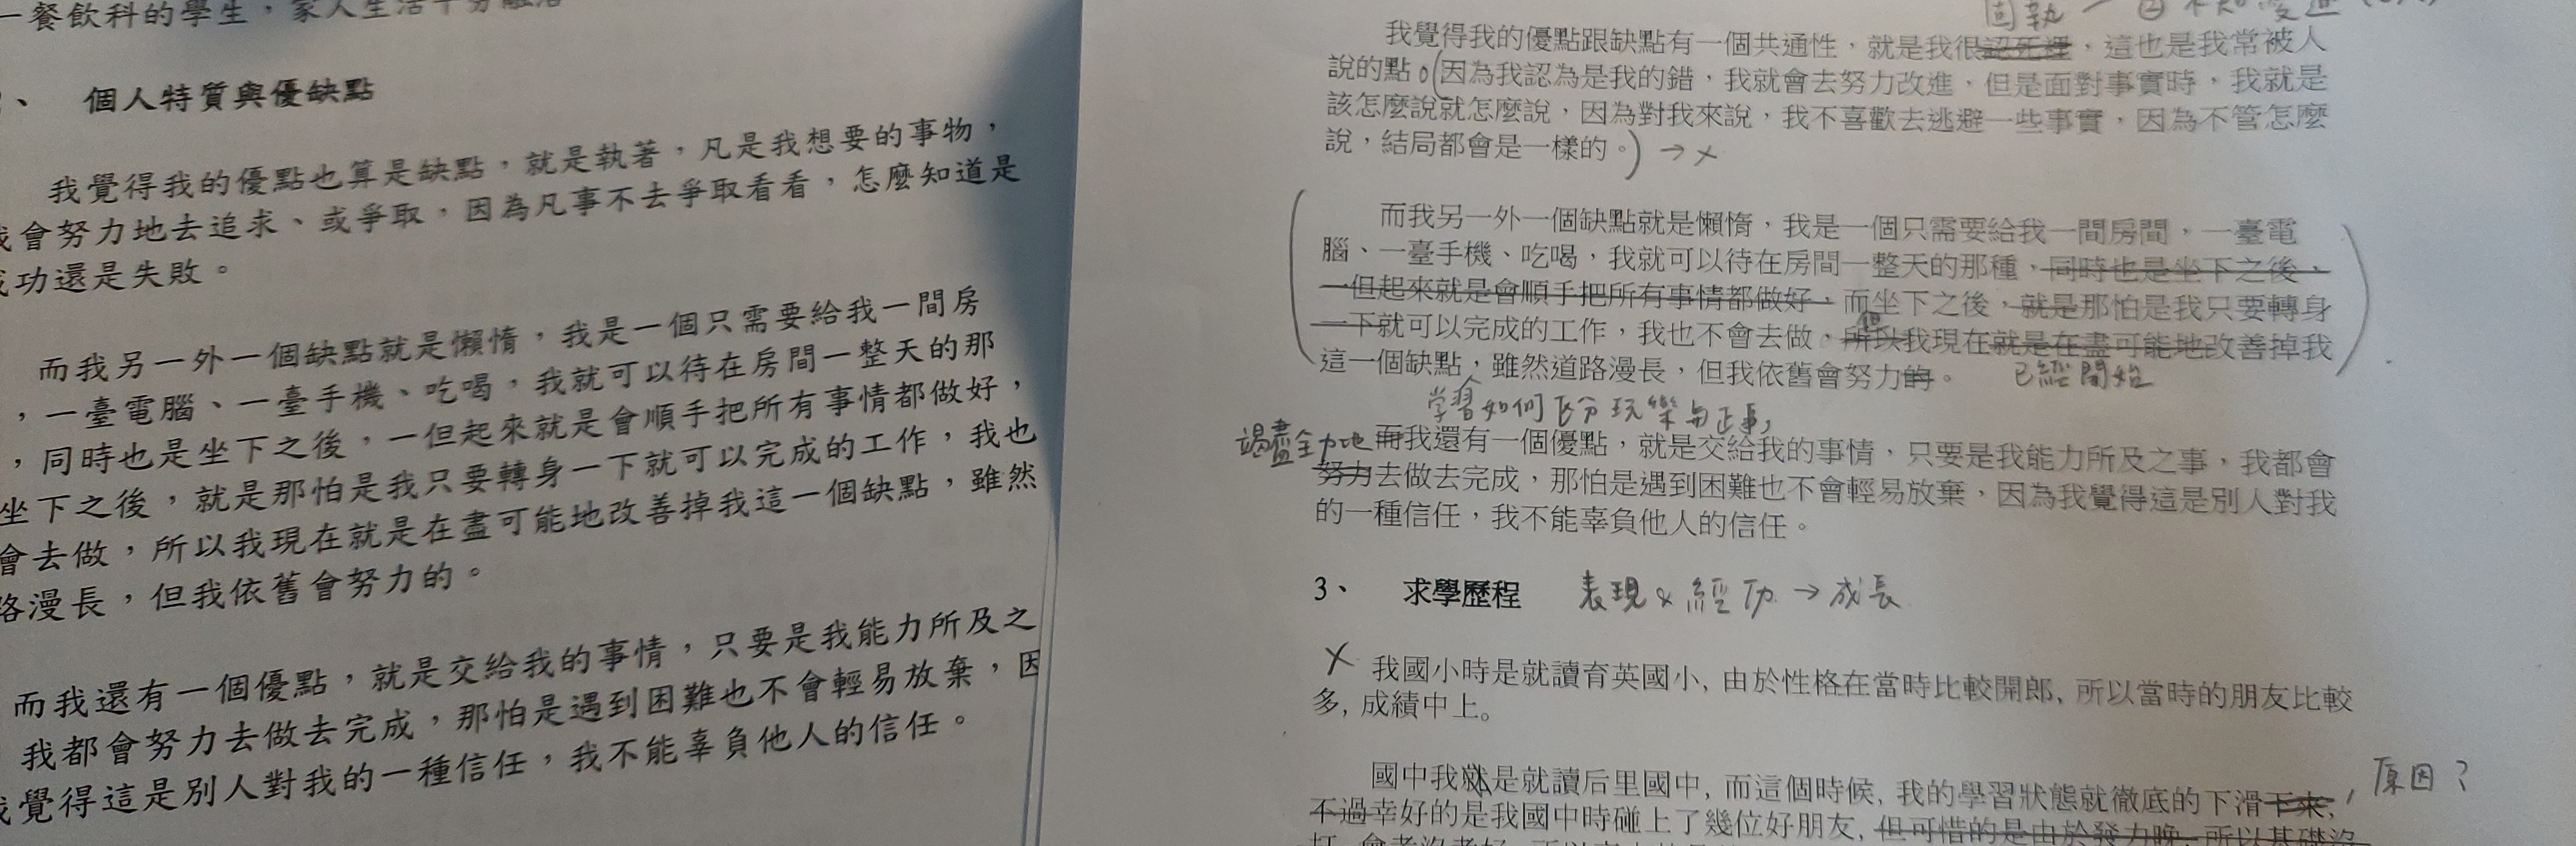 一餐飲科的學生，家人生活十分融洽
、 個人特質與優缺點
我覺得我的優點也算是缺點，就是執著，凡是我想要的事物，
我會努力地去追求、或爭取，因為凡事不去爭取看看，怎麼知道是
成功還是失敗。
而我另一外一個缺點就是懶惰，我是一個只需要給我一間房
，一臺電腦、一臺手機、吃喝，我就可以待在房間一整天的那
，同時也是坐下之後，一但起來就是會順手把所有事情都做好，
坐下之後，就是那怕是我只要轉身一下就可以完成的工作，我也
會去做，所以我現在就是在盡可能地改善掉我這一個缺點，雖然
路漫長，但我依舊會努力的。
而我還有一個優點，就是交給我的事情，只要是我能力所及之
我都會努力去做去完成，那怕是遇到困難也不會輕易放棄，因
我覺得這是別人對我的一種信任，我不能辜負他人的信任。
固執 一 ② 不知變通
我覺得我的優點跟缺點有一個共通性，就是我很認死裡，這也是我常被人
說的點。(因為我認為是我的錯，我就會去努力改進，但是面對事實時，我就是
該怎麼說就怎麼說，因為對我來說，我不喜歡去逃避一些事實，因為不管怎麼
說，結局都會是一樣的。) → ×
而我另一外一個缺點就是懶惰，我是一個只需要給我一間房間，一臺電
腦、一臺手機、吃喝，我就可以待在房間一整天的那種，同時也是坐下之後，
一但起來就是會順手把所有事情都做好，而坐下之後，就是那怕是我只要轉身
一下就可以完成的工作，我也不會去做。所以我現在就是在盡可能地改善掉我
但
這一個缺點，雖然道路漫長，但我依舊會努力的。 已經開始
学習如何区分玩樂与正事，
竭盡全力地 而我還有一個優點，就是交給我的事情，只要是我能力所及之事，我都會
努力去做去完成，那怕是遇到困難也不會輕易放棄，因為我覺得這是別人對我
的一種信任，我不能辜負他人的信任。
3、 求學歷程 表現 & 經历 → 成長
× 我國小時是就讀育英國小, 由於性格在當時比較開郎, 所以當時的朋友比較
多, 成績中上。
國中我就是就讀后里國中, 而這個時候, 我的學習狀態就徹底的下滑下來, , 原因？
不過幸好的是我國中時碰上了幾位好朋友, 但可惜的是由於發力晚, 所以基礎沒